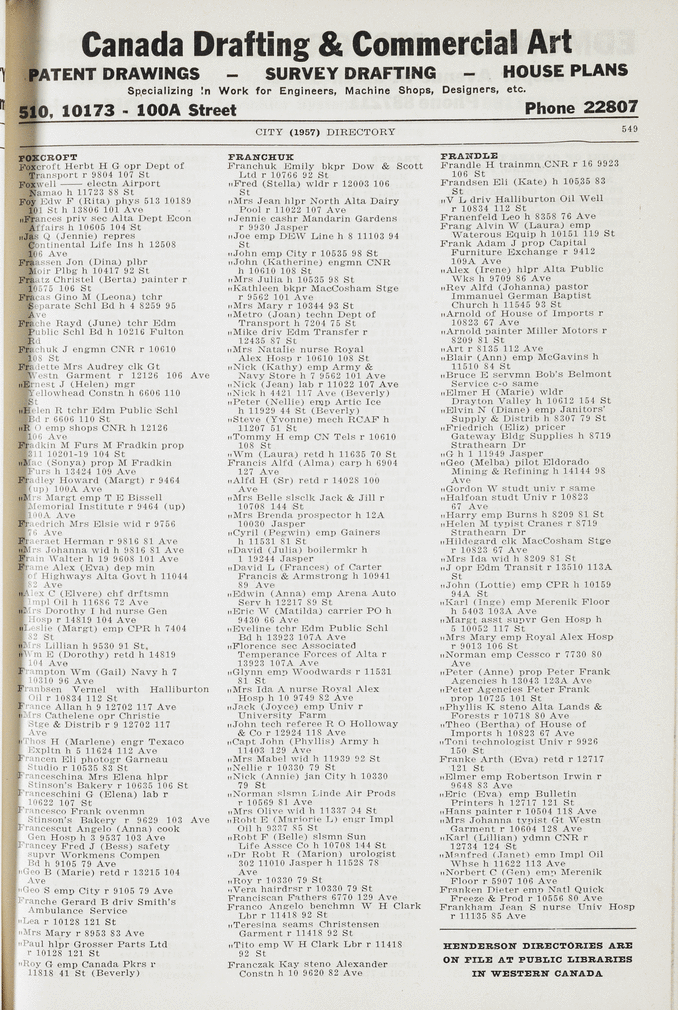 Canada Drafting & Commercial Art
PATENT DRAWINGS — SURVEY DRAFTING — HOUSE PLANS
Specializing in Work for Engineers, Machine Shops, Designers, etc.
510, 10173 - 100A Street Phone 22807
CITY (1957) DIRECTORY 549
FOXCROFT
Foxcroft Herbt H G opr Dept of
Transport r 9804 107 St
Foxwell —— electn Airport
Namao h 11723 88 St
Foy Edw F (Rita) phys 513 10189
101 St h 13806 101 Ave
„Frances priv sec Alta Dept Econ
Affairs h 10605 104 St
„Jas Q (Jennie) repres
Continental Life Ins h 12508
106 Ave
Fraassen Jon (Dina) plbr
Moir Plbg h 10417 92 St
Fraatz Christel (Berta) painter r
10575 106 St
Fracas Gino M (Leona) tchr
Separate Schl Bd h 4 8259 95
Ave
Frache Rayd (June) tchr Edm
Public Schl Bd h 10216 Fulton
Rd
Frachuk J engmn CNR r 10610
108 St
Fradette Mrs Audrey clk Gt
Westn Garment r 12126 106 Ave
„Ernest J (Helen) mgr
Yellowhead Constn h 6606 110
St
„Helen R tchr Edm Public Schl
Bd r 6606 110 St
„R O emp shops CNR h 12126
106 Ave
Fradkin M Furs M Fradkin prop
311 10201-19 104 St
„Mac (Sonya) prop M Fradkin
Furs h 13424 109 Ave
Fradley Howard (Margt) r 9464
(up) 100A Ave
„Mrs Margt emp T E Bissell
Memorial Institute r 9464 (up)
100A Ave
Fraedrich Mrs Elsie wid r 9756
76 Ave
Fraeraet Herman r 9816 81 Ave
„Mrs Johanna wid h 9816 81 Ave
Frain Walter h 19 9608 101 Ave
Frame Alex (Eva) dep min
of Highways Alta Govt h 11044
82 Ave
„Alex C (Elvere) chf drftsmn
Impl Oil h 11686 72 Ave
„Mrs Dorothy I hd nurse Gen
Hosp r 14819 104 Ave
„Leslie (Margt) emp CPR h 7404
82 St
„Mrs Lillian h 9530 91 St,
„Wm E (Dorothy) retd h 14819
104 Ave
Frampton Wm (Gail) Navy h 7
10310 96 Ave
Franbsen Vernel with Halliburton
Oil r 10834 112 St
France Allan h 9 12702 117 Ave
„Mrs Cathelene opr Christie
Stge & Distrib r 9 12702 117
Ave
„Thos H (Marlene) engr Texaco
Expltn h 5 11624 112 Ave
Francen Eli photogr Garneau
Studio r 10535 83 St
Franceschina Mrs Elena hlpr
Stinson's Bakery r 10635 106 St
Franceschini G (Elena) lab r
10622 107 St
Francesco Frank ovenmn
Stinson's Bakery r 9629 103 Ave
Francescut Angelo (Anna) cook
Gen Hosp h 3 9537 103 Ave
Francey Fred J (Bess) safety
supvr Workmens Compen
Bd h 9105 79 Ave
„Geo B (Marie) retd r 13215 104
Ave
„Geo S emp City r 9105 79 Ave
Franche Gerard B driv Smith's
Ambulance Service
„Lea r 10128 121 St
„Mrs Mary r 8953 83 Ave
„Paul hlpr Grosser Parts Ltd
r 10128 121 St
„Roy G emp Canada Pkrs r
11818 41 St (Beverly)
FRANCHUK
Franchuk Emily bkpr Dow & Scott
Ltd r 10766 92 St
„Fred (Stella) wldr r 12003 106
St
„Mrs Jean hlpr North Alta Dairy
Pool r 11022 107 Ave
„Jennie cashr Mandarin Gardens
r 9930 Jasper
„Joe emp DEW Line h 8 11103 94
St
„John emp City r 10535 98 St
„John (Katherine) engmn CNR
h 10610 108 St
„Mrs Julia h 10535 98 St
„Kathleen bkpr MacCosham Stge
r 9562 101 Ave
„Mrs Mary r 10344 93 St
„Metro (Joan) techn Dept of
Transport h 7204 75 St
„Mike driv Edm Transfer r
12435 87 St
„Mrs Natalie nurse Royal
Alex Hosp r 10610 108 St
„Nick (Kathy) emp Army &
Navy Store h 7 9562 101 Ave
„Nick (Jean) lab r 11022 107 Ave
„Nick h 4421 117 Ave (Beverly)
„Peter (Nellie) emp Artic Ice
h 11929 44 St (Beverly)
„Steve (Yvonne) mech RCAF h
11207 51 St
„Tommy H emp CN Tels r 10610
108 St
„Wm (Laura) retd h 11635 70 St
Francis Alfd (Alma) carp h 6904
127 Ave
„Alfd H (Sr) retd r 14028 100
Ave
„Mrs Belle slsclk Jack & Jill r
10708 144 St
„Mrs Brenda prospector h 12A
10030 Jasper
„Cyril (Pegwin) emp Gainers
h 11531 81 St
„David (Julia) boilermkr h
1 19244 Jasper
„David L (Frances) of Carter
Francis & Armstrong h 10941
89 Ave
„Edwin (Anna) emp Arena Auto
Serv h 12217 89 St
„Eric W (Matilda) carrier PO h
9430 66 Ave
„Eveline tchr Edm Public Schl
Bd h 13923 107A Ave
„Florence sec Associated
Temperance Forces of Alta r
13923 107A Ave
„Glynn emp Woodwards r 11531
81 St
„Mrs Ida A nurse Royal Alex
Hosp h 10 9749 82 Ave
„Jack (Joyce) emp Univ r
University Farm
„John tech referee R O Holloway
& Co r 12924 118 Ave
„Capt John (Phyllis) Army h
11403 129 Ave
„Mrs Mabel wid h 11939 92 St
„Nellie r 10330 79 St
„Nick (Annie) jan City h 10330
79 St
„Norman slsmn Linde Air Prods
r 10569 81 Ave
„Mrs Olive wid h 11337 94 St
„Robt E (Marjorie L) engr Impl
Oil h 9337 85 St
„Robt F (Belle) slsmn Sun
Life Assce Co h 10708 144 St
„Dr Robt R (Marion) urologist
302 11010 Jasper h 11528 78
Ave
„Roy r 10330 79 St
„Vera hairdrsr r 10330 79 St
Franciscan Fathers 6770 129 Ave
Franco Angelo benchmn W H Clark
Lbr r 11418 92 St
„Teresina seams Christensen
Garment r 11418 92 St
„Tito emp W H Clark Lbr r 11418
92 St
Franczak Kay steno Alexander
Constn h 10 9620 82 Ave
FRANDLE
Frandle H trainmn CNR r 16 9923
106 St
Frandsen Eli (Kate) h 10535 83
St
„V L driv Halliburton Oil Well
r 10834 112 St
Franenfeld Leo h 8358 76 Ave
Frang Alvin W (Laura) emp
Waterous Equip h 10151 119 St
Frank Adam J prop Capital
Furniture Exchange r 9412
109A Ave
„Alex (Irene) hlpr Alta Public
Wks h 9709 86 Ave
„Rev Alfd (Johanna) pastor
Immanuel German Baptist
Church h 11545 93 St
„Arnold of House of Imports r
10823 67 Ave
„Arnold painter Miller Motors r
8209 81 St
„Art r 8135 112 Ave
„Blair (Ann) emp McGavins h
11510 84 St
„Bruce E servmn Bob's Belmont
Service c-o same
„Elmer H (Marie) wldr
Drayton Valley h 10612 154 St
„Elvin N (Diane) emp Janitors'
Supply & Distrib h 8307 79 St
„Friedrich (Eliz) pricer
Gateway Bldg Supplies h 8719
Strathearn Dr
„G h 1 11949 Jasper
„Geo (Melba) pilot Eldorado
Mining & Refining h 14144 98
Ave
„Gordon W studt univ r same
„Halfoan studt Univ r 10823
67 Ave
„Harry emp Burns h 8209 81 St
„Helen M typist Cranes r 8719
Strathearn Dr
„Hildegard clk MacCosham Stge
r 10823 67 Ave
„Mrs Ida wid h 8209 81 St
„J opr Edm Transit r 13510 113A
St
„John (Lottie) emp CPR h 10159
94A St
„Karl (Inge) emp Merenik Floor
h 5403 103A Ave
„Margt asst supvr Gen Hosp h
5 10052 117 St
„Mrs Mary emp Royal Alex Hosp
r 9013 106 St
„Norman emp Cessco r 7730 80
Ave
„Peter (Anne) prop Peter Frank
Agencies h 13043 123A Ave
„Peter Agencies Peter Frank
prop 10725 101 St
„Phyllis K steno Alta Lands &
Forests r 10718 80 Ave
„Theo (Bertha) of House of
Imports h 10823 67 Ave
„Toni technologist Univ r 9926
150 St
Franke Arth (Eva) retd r 12717
121 St
„Elmer emp Robertson Irwin r
9648 83 Ave
„Eric (Eva) emp Bulletin
Printers h 12717 121 St
„Hans painter r 10504 118 Ave
„Mrs Johanna typist Gt Westn
Garment r 10604 128 Ave
„Karl (Lillian) ydmn CNR r
12734 124 St
„Manfred (Janet) emp Impl Oil
Whse h 11622 113 Ave
„Norbert C (Gen) emp Merenik
Floor r 5907 106 Ave
Franken Dieter emp Natl Quick
Freeze & Prod r 10556 80 Ave
Frankham Jean S nurse Univ Hosp
r 11135 85 Ave
HENDERSON DIRECTORIES ARE
ON FILE AT PUBLIC LIBRARIES
IN WESTERN CANADA